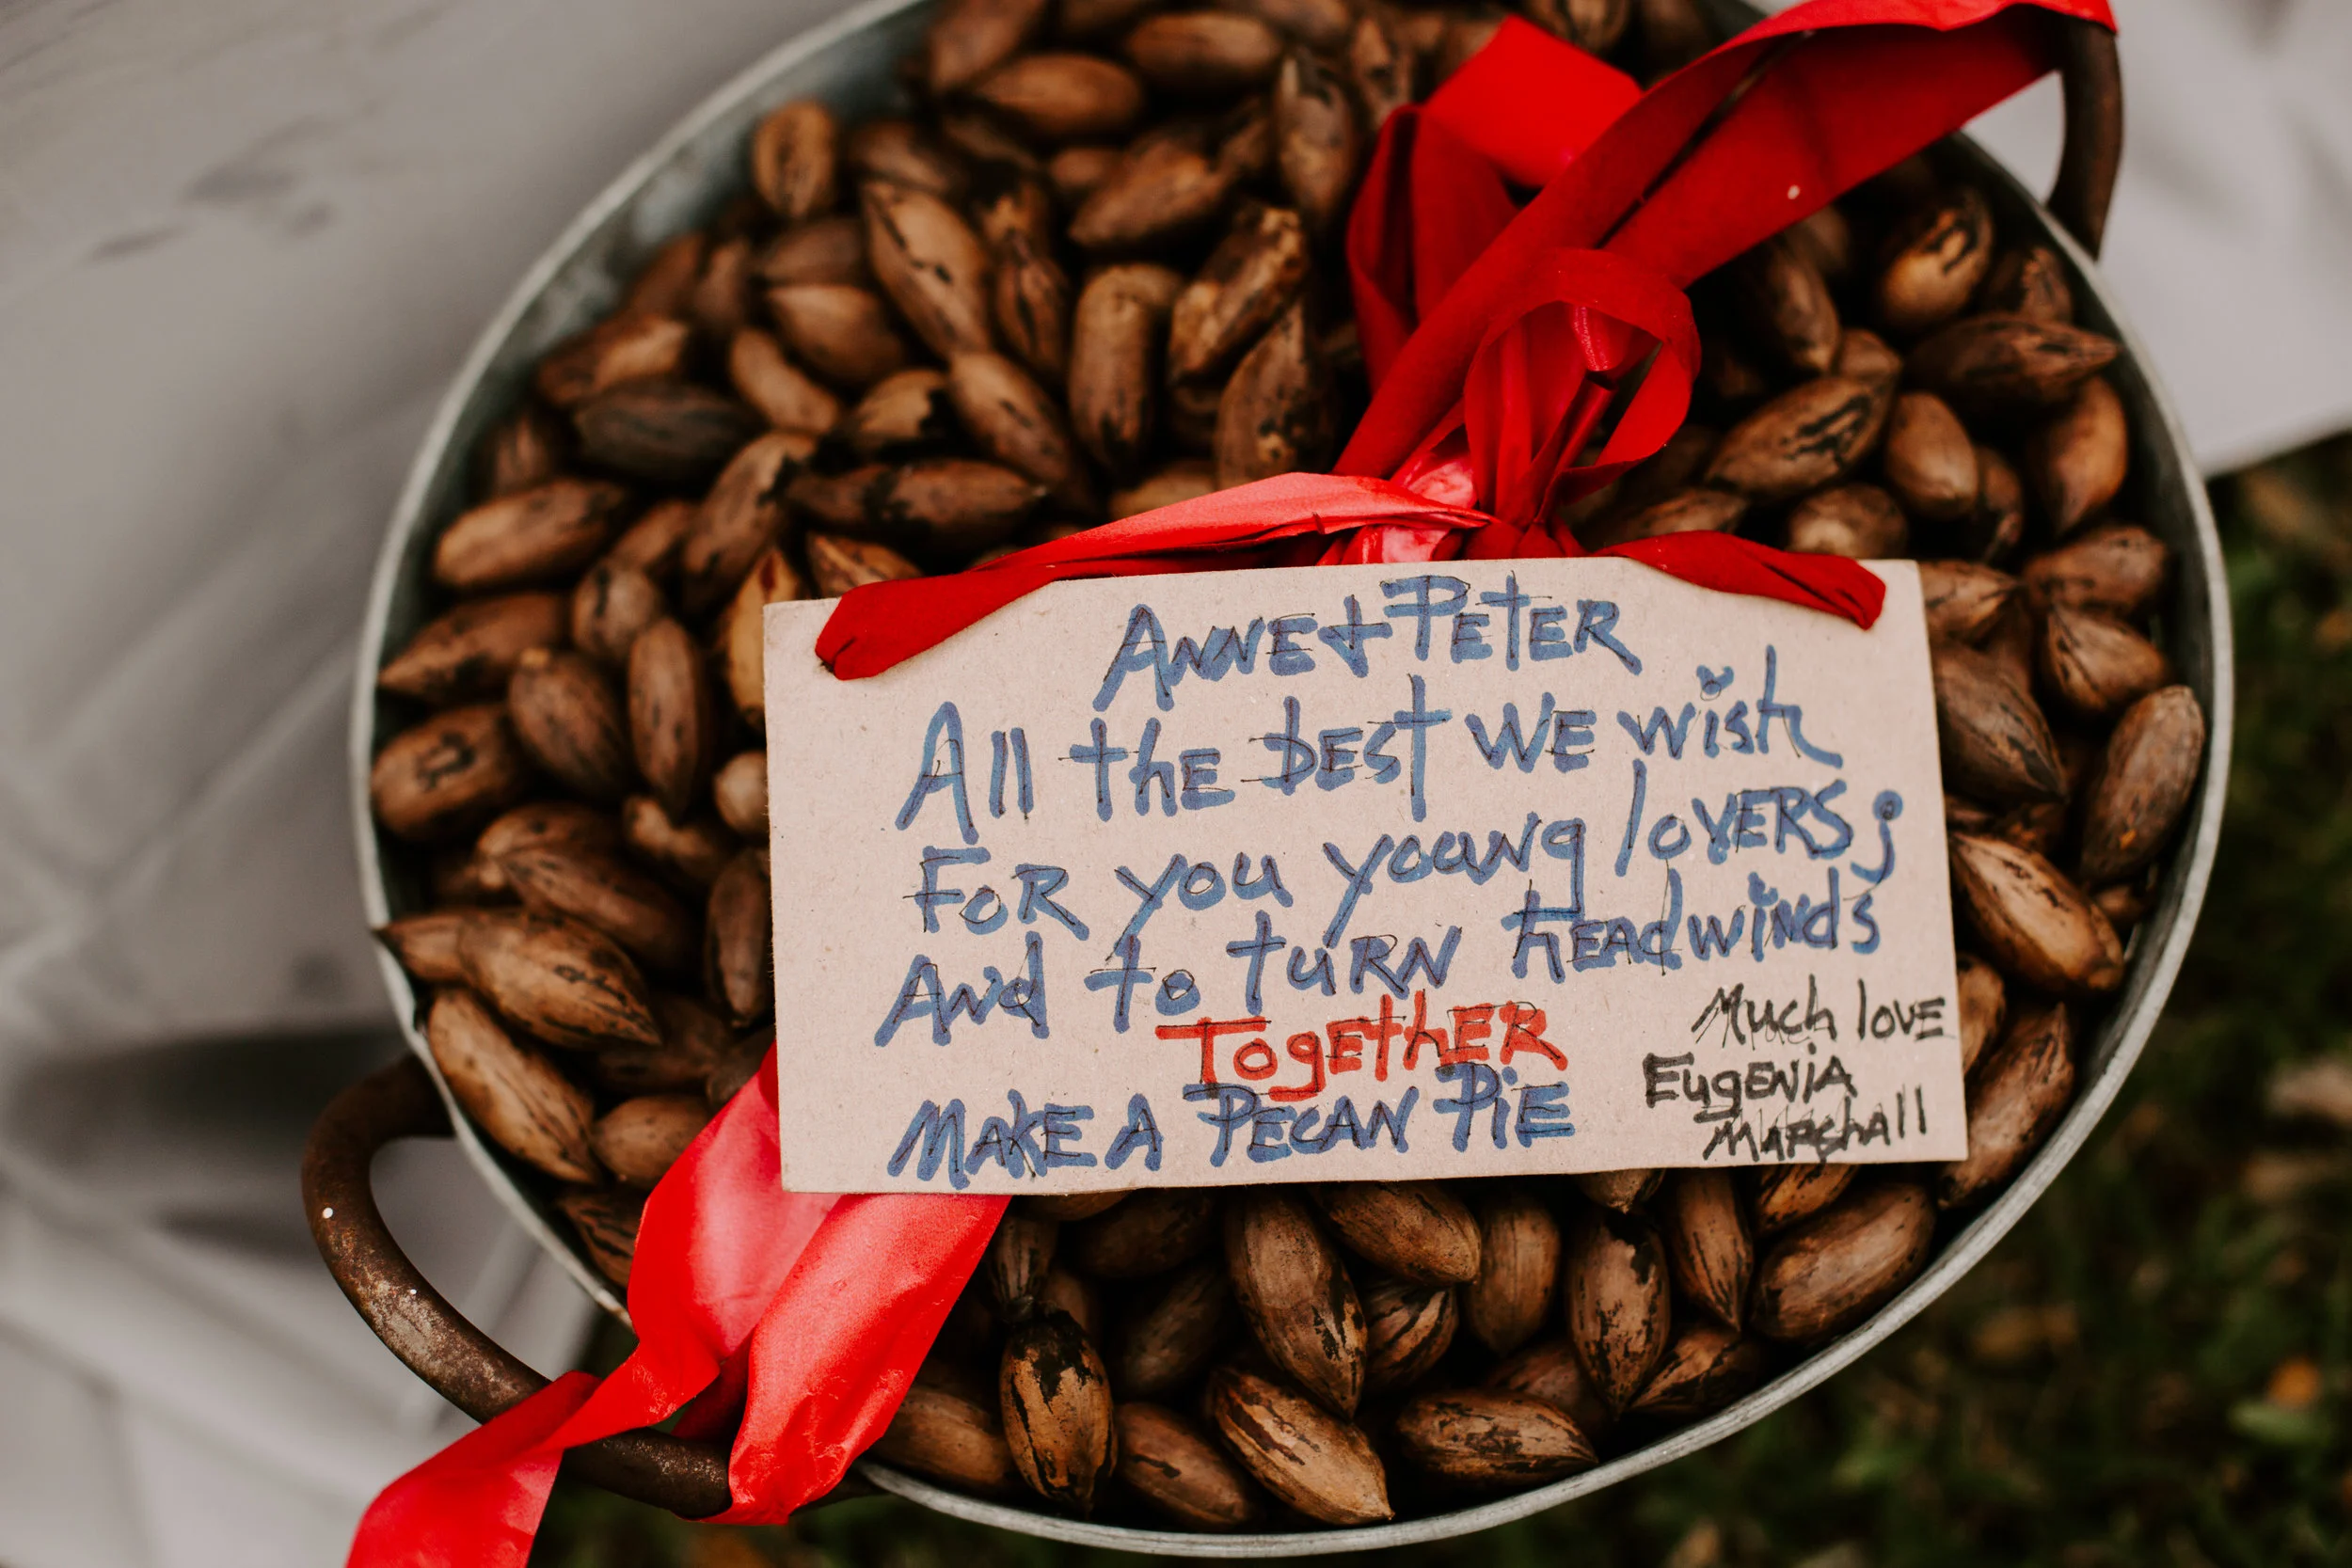 Anne + Peter
All the best we wish
For you young lovers;
And to turn headwinds
Together
Make a Pecan Pie
Much love
Eugenia
Marshall